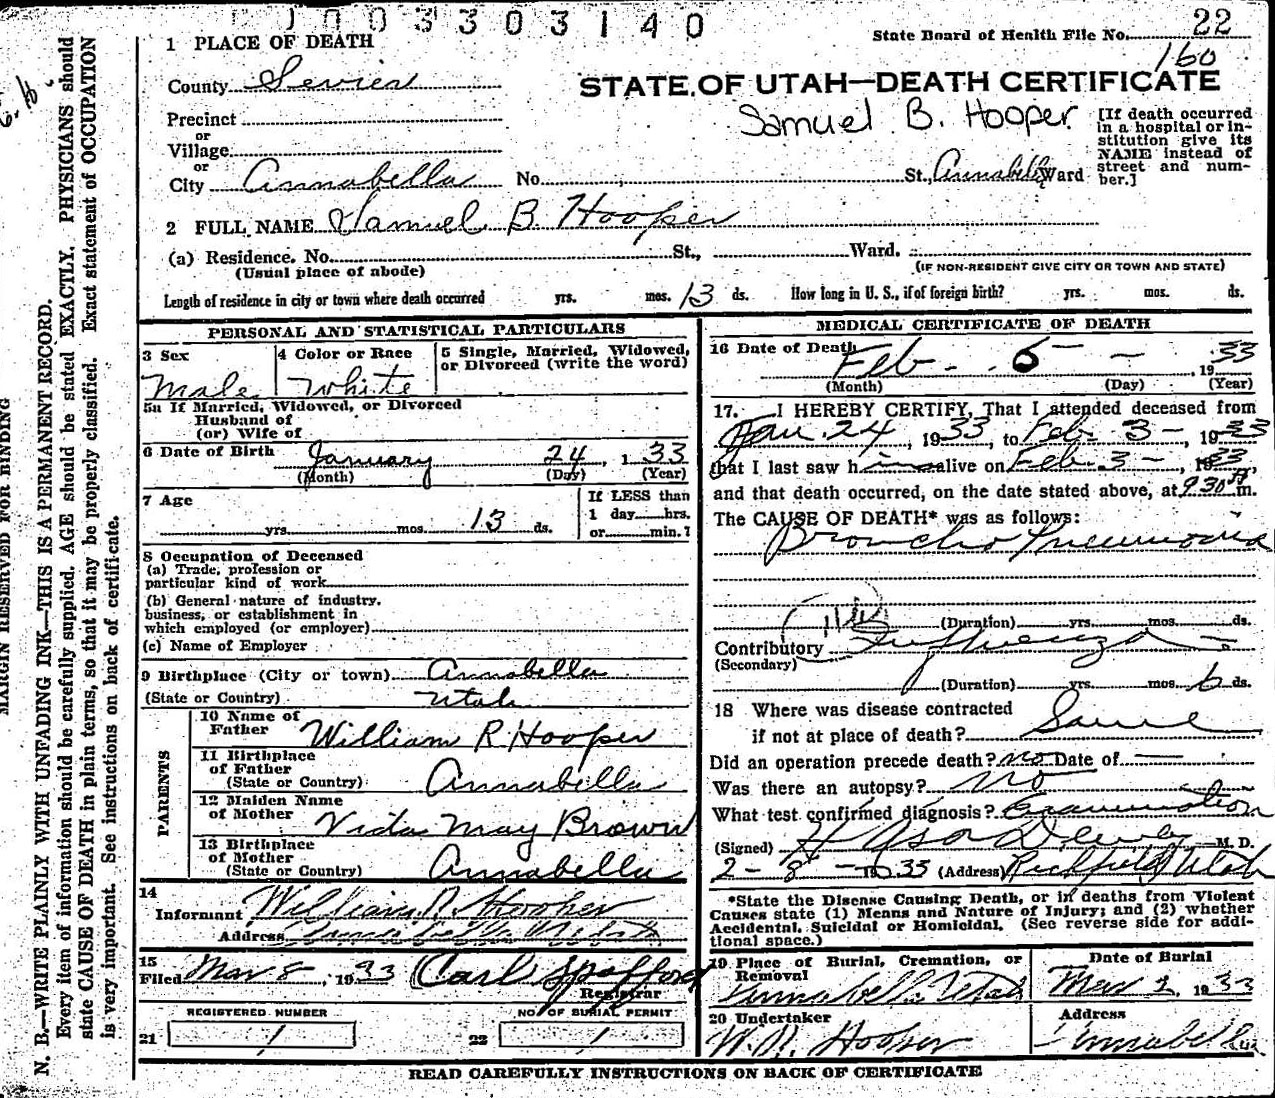 1003303140
State Board of Health File No. 22
160
1 PLACE OF DEATH
County Sevier
STATE OF UTAH—DEATH CERTIFICATE
Samuel B. Hooper
[If death occurred in a hospital or institution give its NAME instead of street and number.]
Precinct
or
Village
or
City Annabella No. St., Annabella Ward
2 FULL NAME Samuel B. Hooper
(a) Residence. No. St., Ward.
(Usual place of abode)
(IF NON-RESIDENT GIVE CITY OR TOWN AND STATE)
Length of residence in city or town where death occurred yrs. mos. 13 ds. How long in U. S., if of foreign birth? yrs. mos. ds.
PERSONAL AND STATISTICAL PARTICULARS
3 Sex
Male
4 Color or Race
White
5 Single, Married, Widowed,
or Divorced (write the word)
5a If Married, Widowed, or Divorced
Husband of
(or) Wife of
6 Date of Birth January 24, 1 33
(Month) (Day) (Year)
7 Age
yrs. mos. 13 ds.
If LESS than
1 day hrs.
or min.?
8 Occupation of Deceased
(a) Trade, profession or
particular kind of work
(b) General nature of industry,
business, or establishment in
which employed (or employer)
(c) Name of Employer
9 Birthplace (City or town) Annabella
(State or Country) Utah
PARENTS
10 Name of
Father William R. Hooper
11 Birthplace
of Father
(State or Country) Annabella
12 Maiden Name
of Mother Vida May Brown
13 Birthplace
of Mother
(State or Country) Annabella
14
Informant William R. Hooper
Address Annabella Utah
15
Filed Mar 8, 1933 Carl Spafford
Registrar
REGISTERED NUMBER
21 1
NO. OF BURIAL PERMIT
22 1
MEDICAL CERTIFICATE OF DEATH
16 Date of Death Feb - 6 - , 19 33
(Month) (Day) (Year)
17. I HEREBY CERTIFY, That I attended deceased from
Jan. 24, 1933, to Feb 3-, 1933
that I last saw him alive on Feb 3-, 1933,
and that death occurred, on the date stated above, at 9:30 m.
The CAUSE OF DEATH* was as follows:
Broncho Pneumonia
(Duration) yrs. mos. ds.
Contributory Influenza
(Secondary)
(Duration) yrs. mos. 6 ds.
18 Where was disease contracted
if not at place of death? Same
Did an operation precede death? no Date of —
Was there an autopsy? no
What test confirmed diagnosis? Examination
(Signed) M. D.
2-8-1933 (Address) Richfield Utah
*State the Disease Causing Death, or in deaths from Violent
Causes state (1) Means and Nature of Injury; and (2) whether
Accidental, Suicidal or Homicidal. (See reverse side for addi-
tional space.)
19 Place of Burial, Cremation, or
Removal
Annabella Utah
Date of Burial
Mar 2, 1933
20 Undertaker
W. R. Hooper
Address
Annabella
READ CAREFULLY INSTRUCTIONS ON BACK OF CERTIFICATE
MARGIN RESERVED FOR BINDING
N. B.—WRITE PLAINLY WITH UNFADING INK—THIS IS A PERMANENT RECORD.
Every item of information should be carefully supplied. AGE should be stated EXACTLY. PHYSICIANS should
state CAUSE OF DEATH in plain terms, so that it may be properly classified. Exact statement of OCCUPATION
is very important. See instructions on back of certificate.